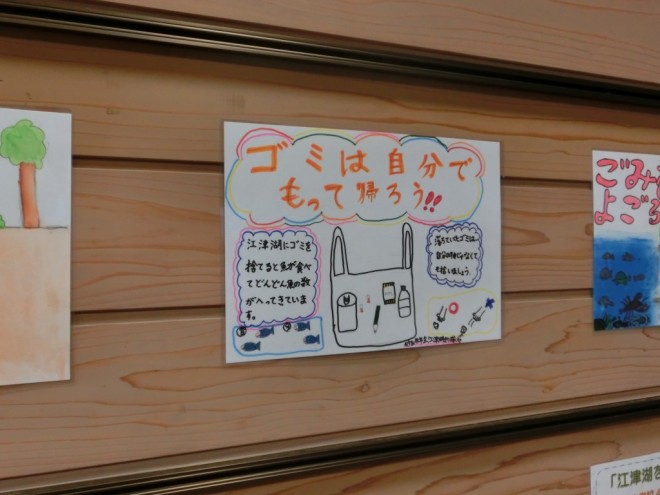 ゴミは自分で
もって帰ろう!!
江津湖にゴミを
捨てると魚が食べ
てどんどん魚の数
がへってきていま
す。
落ちていたゴミは
自分のじゃなくて
も拾いましょう
ごみ
よご
「江津湖を